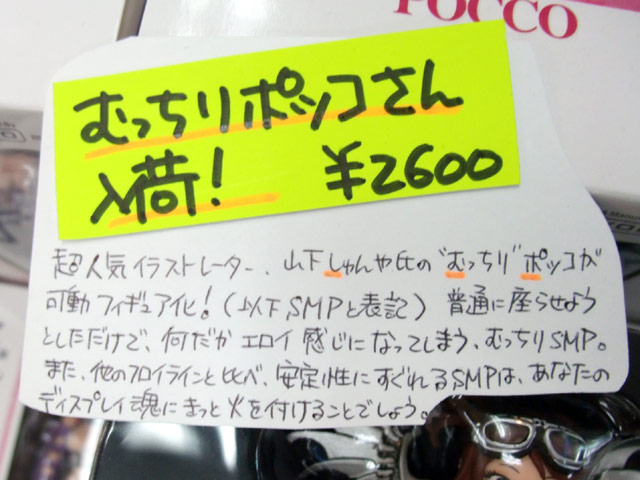 POCCO
むっちりポッコさん
入荷! ¥2600
超人気イラストレーター、山下しゅんや氏の"むっちり"ポッコが
可動フィギュア化!(以下、SMPと表記) 普通に座らせよう
としただけで、何だかエロイ感じになってしまう、むっちりSMP。
また、他のフロイラインと比べ、安定性にすぐれるSMPは、あなたの
ディスプレイ魂にきっと火を付けることでしょう。